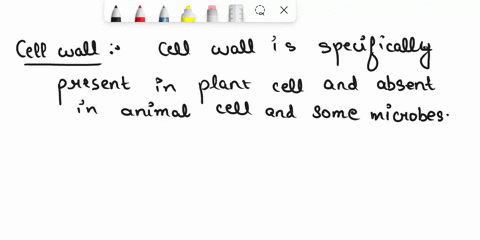 Cell wall :- Cell wall is specifically
present in plant cell and absent
in animal cell and some microbes.